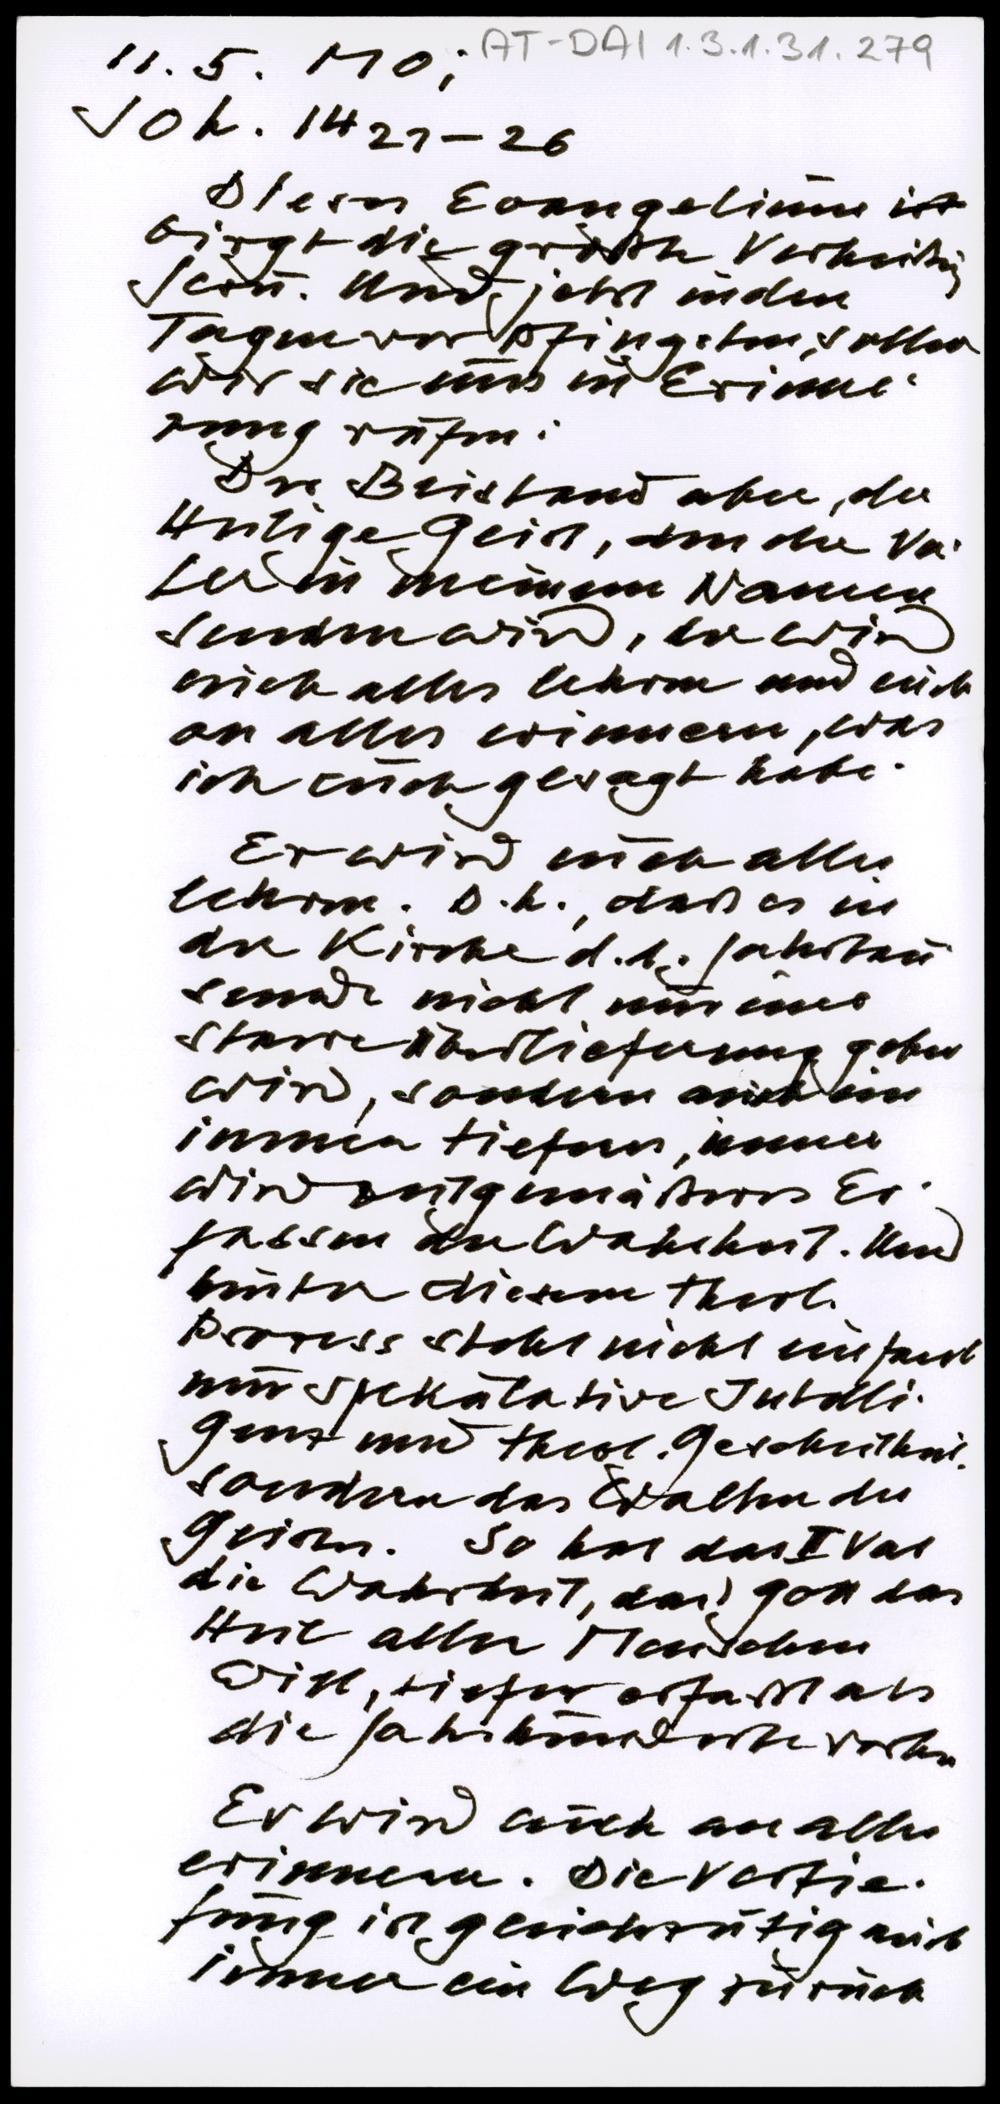 AT-DAI 1.3.1.31.279
11. 5. MO;
Joh. 14 21-26
Dieses Evangelium ist
birgt die größte Verheißung
Jesu. Und jetzt in den
Tagen vor Pfingsten, sollen
wir sie uns in Erinne-
rung rufen:
Der Beistand aber, der
Heilige Geist, den der Va-
ter in meinem Namen
senden wird, der wird
euch alles lehren und euch
an alles erinnern, was
ich euch gesagt habe.
Er wird euch alles
lehren. D.h., daß es in
der Kirche d.d. Jahrtau
sende nicht nur eine
starre Überlieferung geben
wird, sondern auch ein
immer tieferes, immer
wird zeitgemäßeres Er-
fassen der Wahrheit. Und
hinter diesem theol.
Prozess steht nicht einfach
nur spekulative Intelli-
genz und theol. Gescheitheit,
sondern das Walten des
Geistes. So hat das II Vat
die Wahrheit, daß Gott das
Heil aller Menschen
will, tiefer erfaßt als
die Jahrhunderte vorher
Er wird euch an alles
erinnern. Die Vertie-
fung ist gleichzeitig auch
immer ein Weg zurück